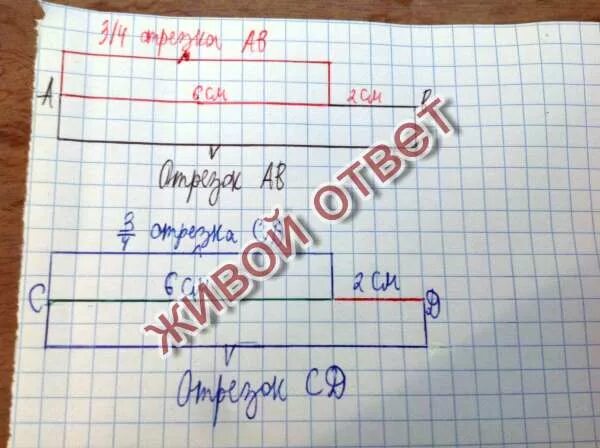 3/4 отрезка AB
A 6 см 2 см
Отрезок AB
3/4 отрезка
6 см 2 см
C D
Отрезок CD
ЖИВОЙ ОТВЕТ